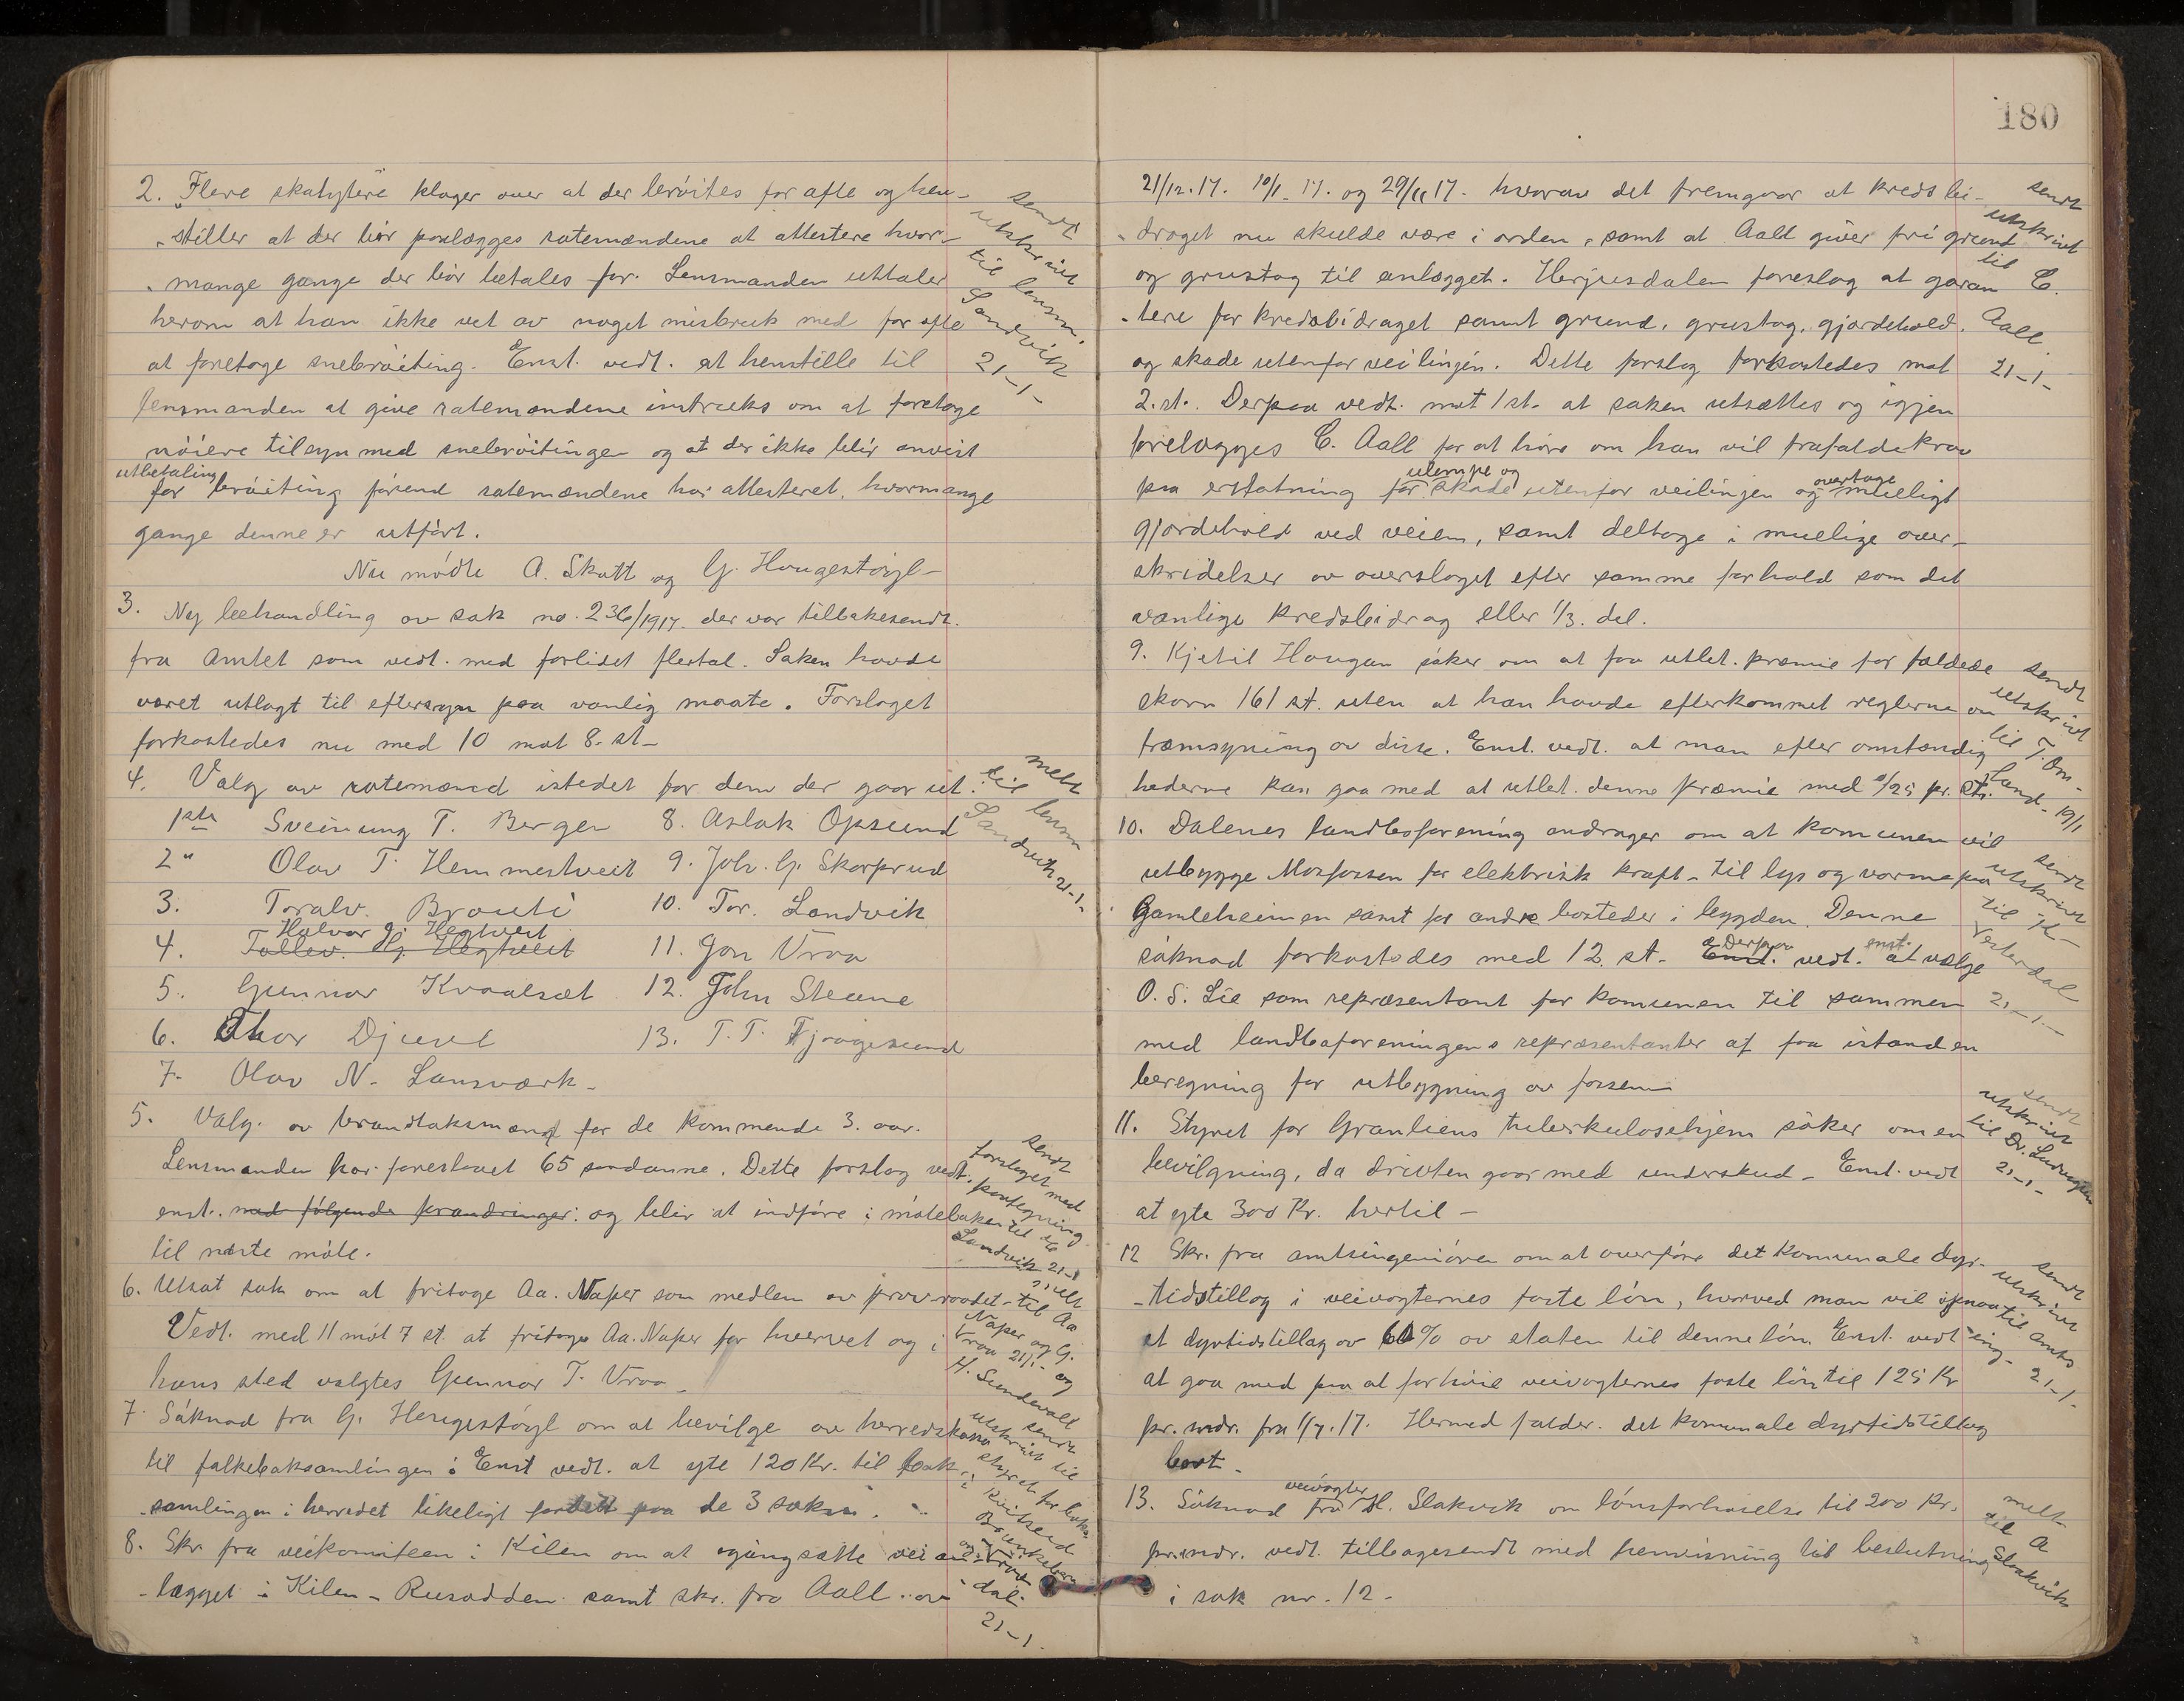 2. „Flere skatytere" klager over at der brøites for ofte og hen-
-stiller at der bør paalægges rotemændene at attestere hvor-
- mange gange der bør betales for. Lensmanden uttaler
herom at han ikke vet av noget misbruk med for ofte
at foretage snebrøiting. Enst. vedt. at henstille til
lensmanden at give rotemændene instruks om at foretage
nøiere tilsyn med snebrøitingen og at der ikke blir anvist
utbetaling
for brøiting førend rotemændene har attesteret, hvormange
gange denne er utført.
sendt
utskrift
til lensm.
Landvik
21-1-
Nu mødte A. Skatt og G. Haugestøyl-
3. Ny behandling av sak no. 236/1917. der var tilbakesendt.
fra Amtet som vedt. med forlidet flertal. Saken havde
været utlagt til eftersyn paa vanlig maate. Forslaget
forkastedes nu med 10 mot 8. st-
4. Valg av rotemænd istedet for dem der gaar ut.
1ste Sveinung T. Bergen 8. Aslak Opsund
2" Olav T. Hemmestveit 9. Joh. G. Skarprud
3. Toralv. Brauti 10. Tor. Landvik
Halvor G. Hegtveit
4. Tallev. G. Hegtveit 11. Jon Vraa
5. Gunnar Kvaalsæt 12. John Steane
6. Thor Djuve 13. T. T. Fjøagesund
7. Olav N. Lansværk-
meldt
til lensm
Landvik 21-1-
5. Valg. av brandtaksmænd for de kommende 3. aar.
Lensmanden har foreslaaet 65 saadanne. Dette forslag vedt.
enst. med følgende forandringer: og blir at indføre i møteboken til
til næste møte.
sendt
forslaget med
paategning
til
Landvik 21-1
6. Utsat sak om at fritage Aa. Naper som medlem av provraadet-
Vedt. med 11 mot 7 st. at fritage Aa. Naper for hvervet og i
hans sted valgtes Gunnar T. Vraa-
til Aa
Naper og G.
Vraa 21/1- og
H. Sundevall
7. Søknad fra G. Haugestøyl om at bevilge av herredskassen
til folkeboksamlingen: Enst vedt. at yte 120 Kr. til bok-
-samlingen i herredet likeligt fordelt paa de 3 sokn.
sendt
utskrift til
styret for boks.
i Kviteseid
Brunkeberg
og Vraa-
dal.
21-1.
8. Skr. fra veikomiteen i Kilen om at igangsætte veian-
-lægget i Kilen - Rusodden. samt skr. fra Aall av
180
21/12.17. 10/1.17. og 29/11 17. hvorav det fremgaar at kredsbi-
-draget nu skulde være i orden, samt at Aall giver fri grund
og grustag til anlægget. Herjusdalen foreslog at garan
-tere for kredsbidraget samt grund, grustag, gjærdehold.
og skade utenfor veilinjen. Dette forslag forkastedes mot
2. st. Derpaa vedt. mot 1 st. at saken utsættes og igjen
forelægges C. Aall for at høre om han vil frafalde krav
ulempe og
overtage
paa erstatning for skade utenfor veilinjen og mueligt
gjærdehold ved veien, samt deltage i muelige over-
skridelser av overslaget efter samme forhold som det
vanlige kredsbidrag eller 1/3. del.
sendt
utskrift
til
C.
Aall.
21-1-
9. Kjetil Haugan søker om at faa utbet. præmie for fældede
skarv 161 st. uten at han havde efterkommet reglerne om
fremsyning av disse. Enst. vedt. at man efter omstændig
hederne kan gaa med at utbet. denne præmie med 0/25 pr. st.
sendt
utskrift
til T. Om-
land- 19/1
10. Dalenes landboforening andrager om at komunen vil
utbygge Morfossen for elektrisk kraft- til lys og varme paa
Gamleheimen samt for andre bosteder i bygden. Denne
søknad forkastedes med 12. st- Enst. Derpaa vedt. enst. at vælge
O. S. Lie som repræsentant for komunen til sammen
med landboforeningens repræsentanter at faa istanden
beregning for utbygning av fossen
sendt
utskrift
til H-
Vesterdal
21-1-
11. Styret for Granliens tuberkulosehjem søker om en
bevilgning, da driften gaar med underskud- Enst. vedt
at yte 300 Kr. hertil-
sendt
utskrift
til Dr. Ludvigsen
21-1-
12 Skr. fra amtsingeniøren om at overføre det komunale dyr-
-tidstillæg i veivogternes faste løn, hvorved man vil opnaa
et dyrtidstillæg av 60% av staten til denne løn. Enst. vedt
at gaa med paa at forhøie veivogternes faste løn til 125 Kr
pr. mdr. fra 1/7. 17. Hermed falder. det komunale dyrtidstillæg
bort-
sendt
utskrift
til amts
ing-
21-1-
veivogter
13. Søknad fra H. Slakvik om lønsforhøielse til 200 Kr.
pr. mdr. vedt. tilbagesendt med henvisning til beslutning
i sak nr. 12-
melt
til A
Slakvik